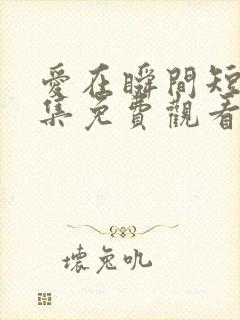 愛在瞬間短
集免費觀看
壞兔吼